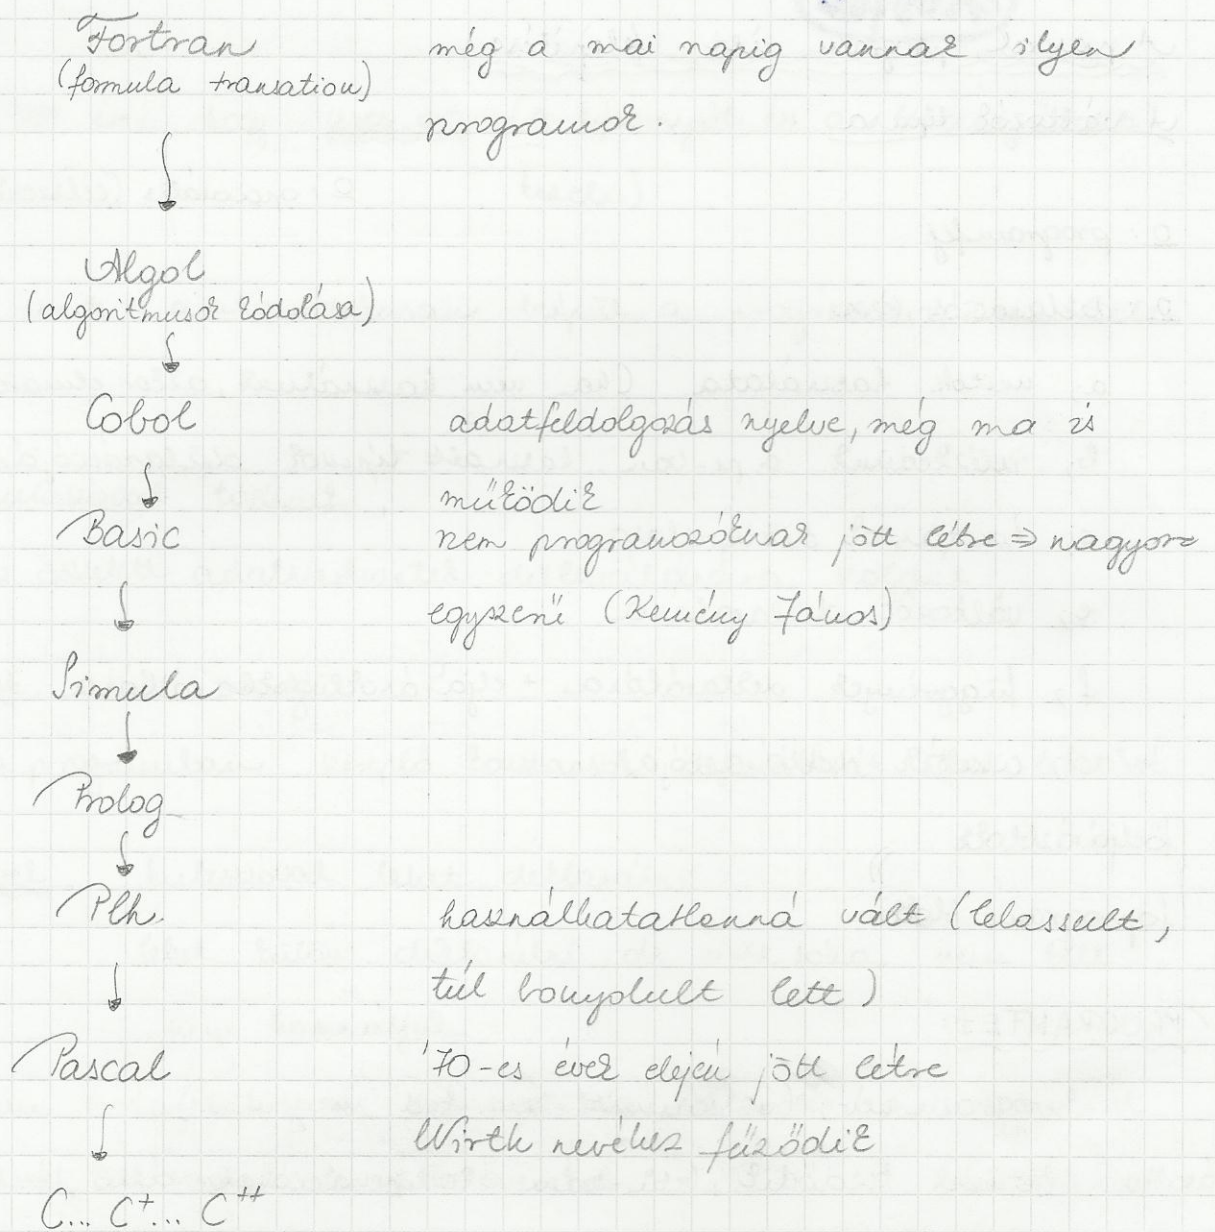 Fortran még a mai napig vannak ilyen
(formula transation)
programok.
Algol
(algoritmusok kódolása)
Cobol adatfeldolgozás nyelve, még ma is
működik
Basic nem programozóknak jött létre ⇒ nagyon
egyszerű (Kemény János)
Simula
Prolog
Plh használhatatlanná vált (lelassult,
túl bonyolult lett)
Pascal '70-es évek elején jött létre
Wirth nevéhez fűződik
C... C⁺... C⁺⁺